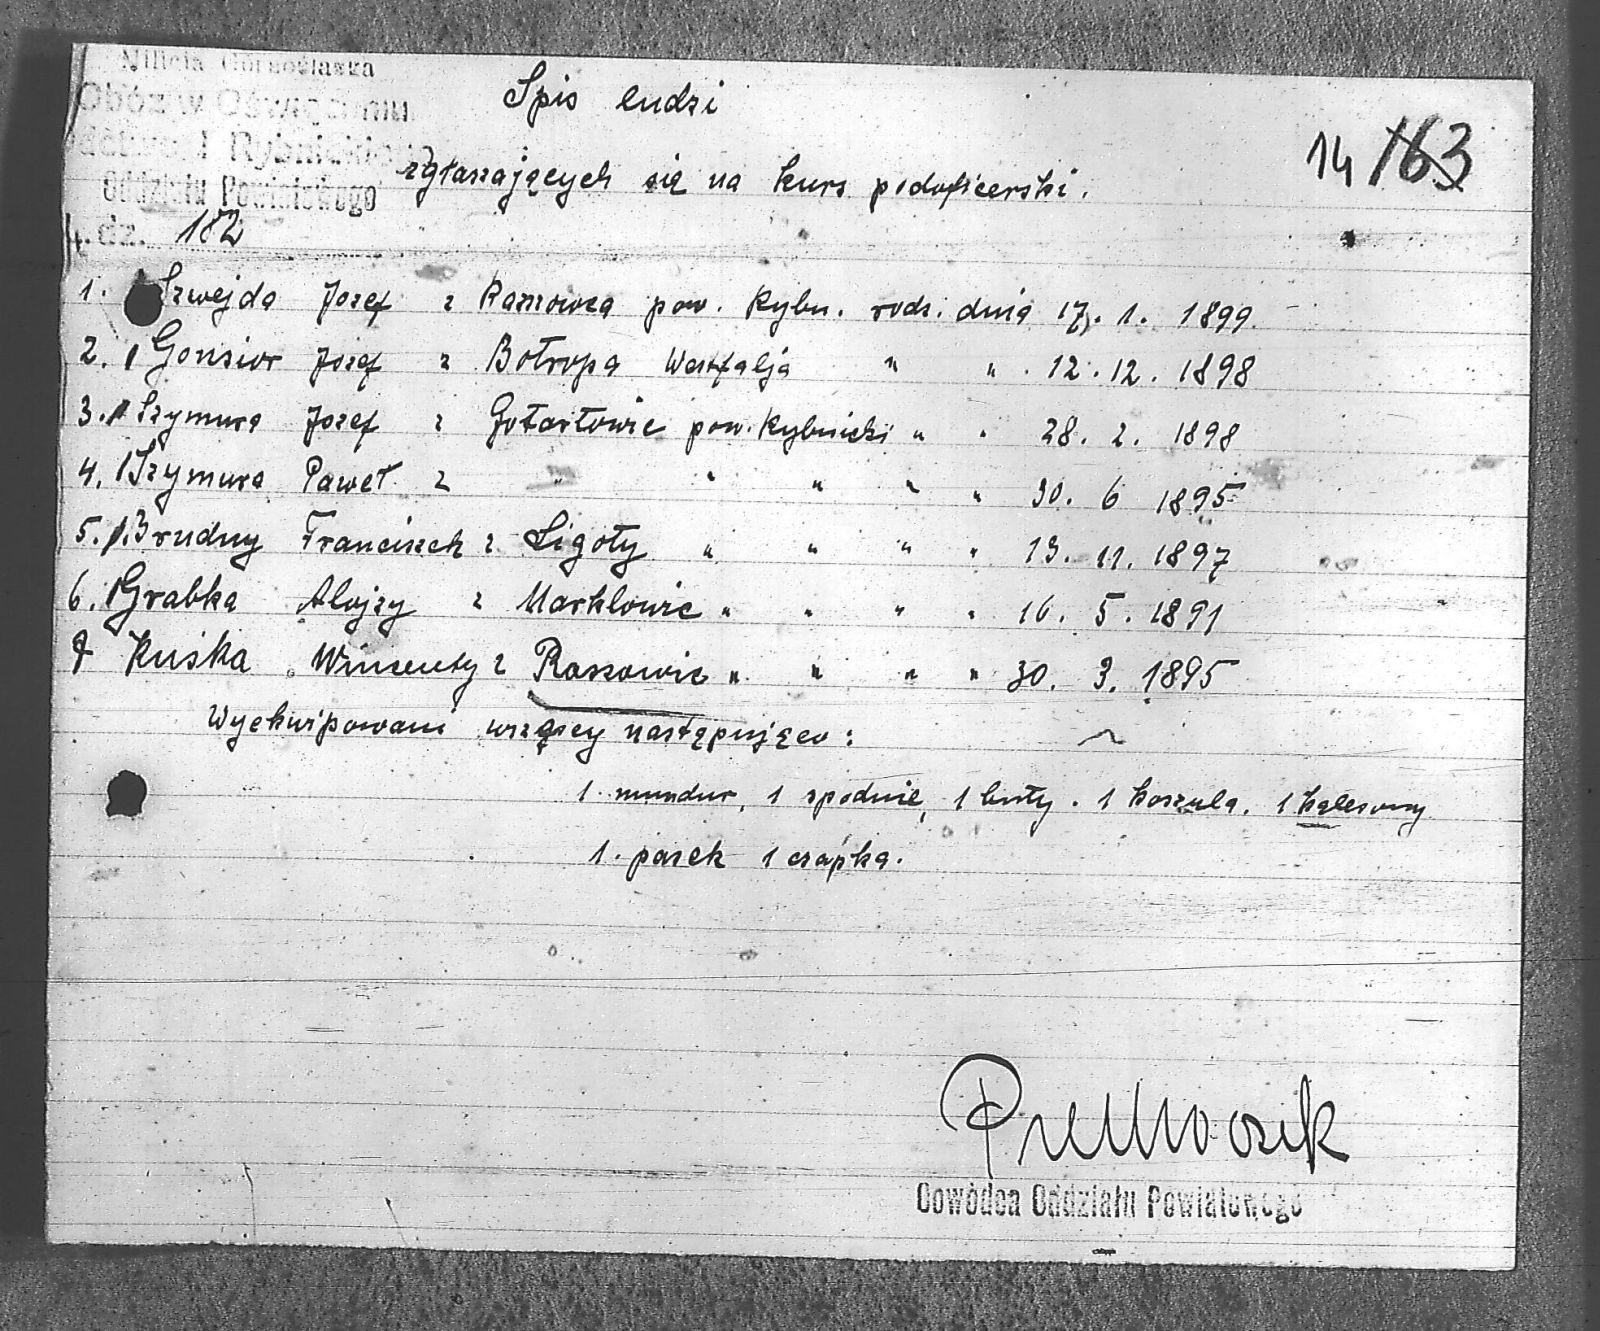 Milicja Górnośląska
Obóz w Oświęcimiu
Oddziału Powiatowego
L. dz. 182
Spis ludzi
zgłaszających się na kurs podoficerski.
14 163
1. Szwejda Jozef z Raszowca pow. Rybn. rodz. dnia 17. 1. 1899.
2. Gonsior Jozef z Botropa Westfalja " " 12. 12. 1898
3. Szymura Jozef z Gotartowic pow. Rybnicki " " 28. 2. 1898
4. Szymura Paweł z " " " " " 30. 6 1895
5. Brudny Franciszek z Ligoty " " " " 13. 11. 1897
6. Grabka Alojzy z Marklowic " " " " 16. 5. 1891
7 Kuśka Wincenty z Raszowic " " " " 30. 3. 1895
Wyekwipowani wszyscy następująco:
1. mundur, 1 spodnie, 1 buty. 1 koszula. 1 kalesony
1. pasek 1 czapka.
Dowódca Oddziału Powiatowego